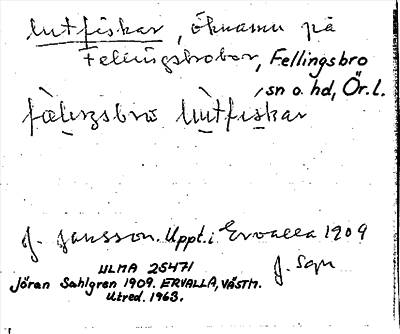 lutfiskar, öknamn på
Fellingsbrobor, Fellingsbro
sn o. hd, Ör. l.
fälingsbro lùtfiskar
J. Jansson. Uppt. i Ervalla 1909
J. Sgn
ULMA 25471
Jöran Sahlgren 1909. ERVALLA, VÄSTM.
Utred. 1963.